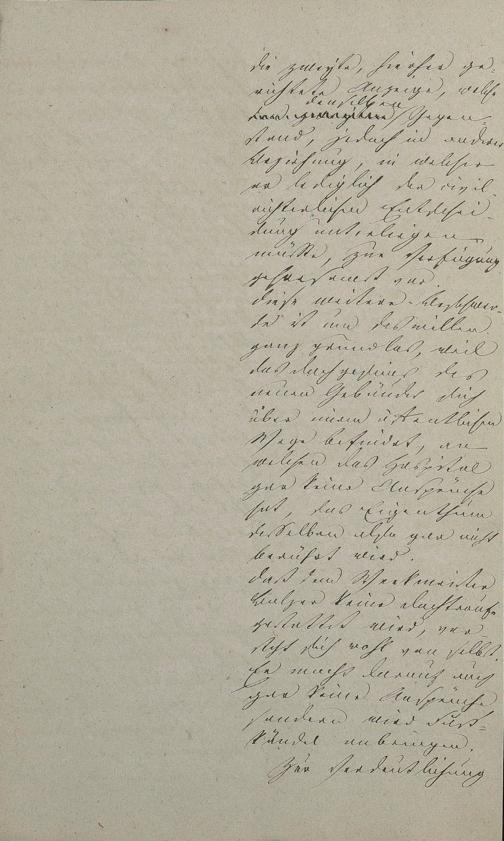 die zweyte, hierher ge-
richtete Anzeige, welche
denselben
Gegen-
stand, jedoch in anderer
Beziehung, in welcher
er lediglich der civil
richterlichen Entschei-
dung unterliegen
müßte, zur Verfügung
gehorsamst vor.
Diese weitere Beschwer-
de ist um deswillen
ganz grundlos, weil
das Dachgesims des
neuen Gebäudes sich
über einem öffentlichen
Wege befindet, an
welchen das Hospital
gar keine Ansprüche
hat, das Eigenthum
desselben also gar nicht
berührt wird.
Daß dem Werkmeister
Balzer keine Dachtraufe
gestattet wird, ver-
steht sich wohl von selbst
Er macht darauf auch
gar keine Ansprüche
sondern wird
Kändel anbringen.
Zur Verdeutlichung